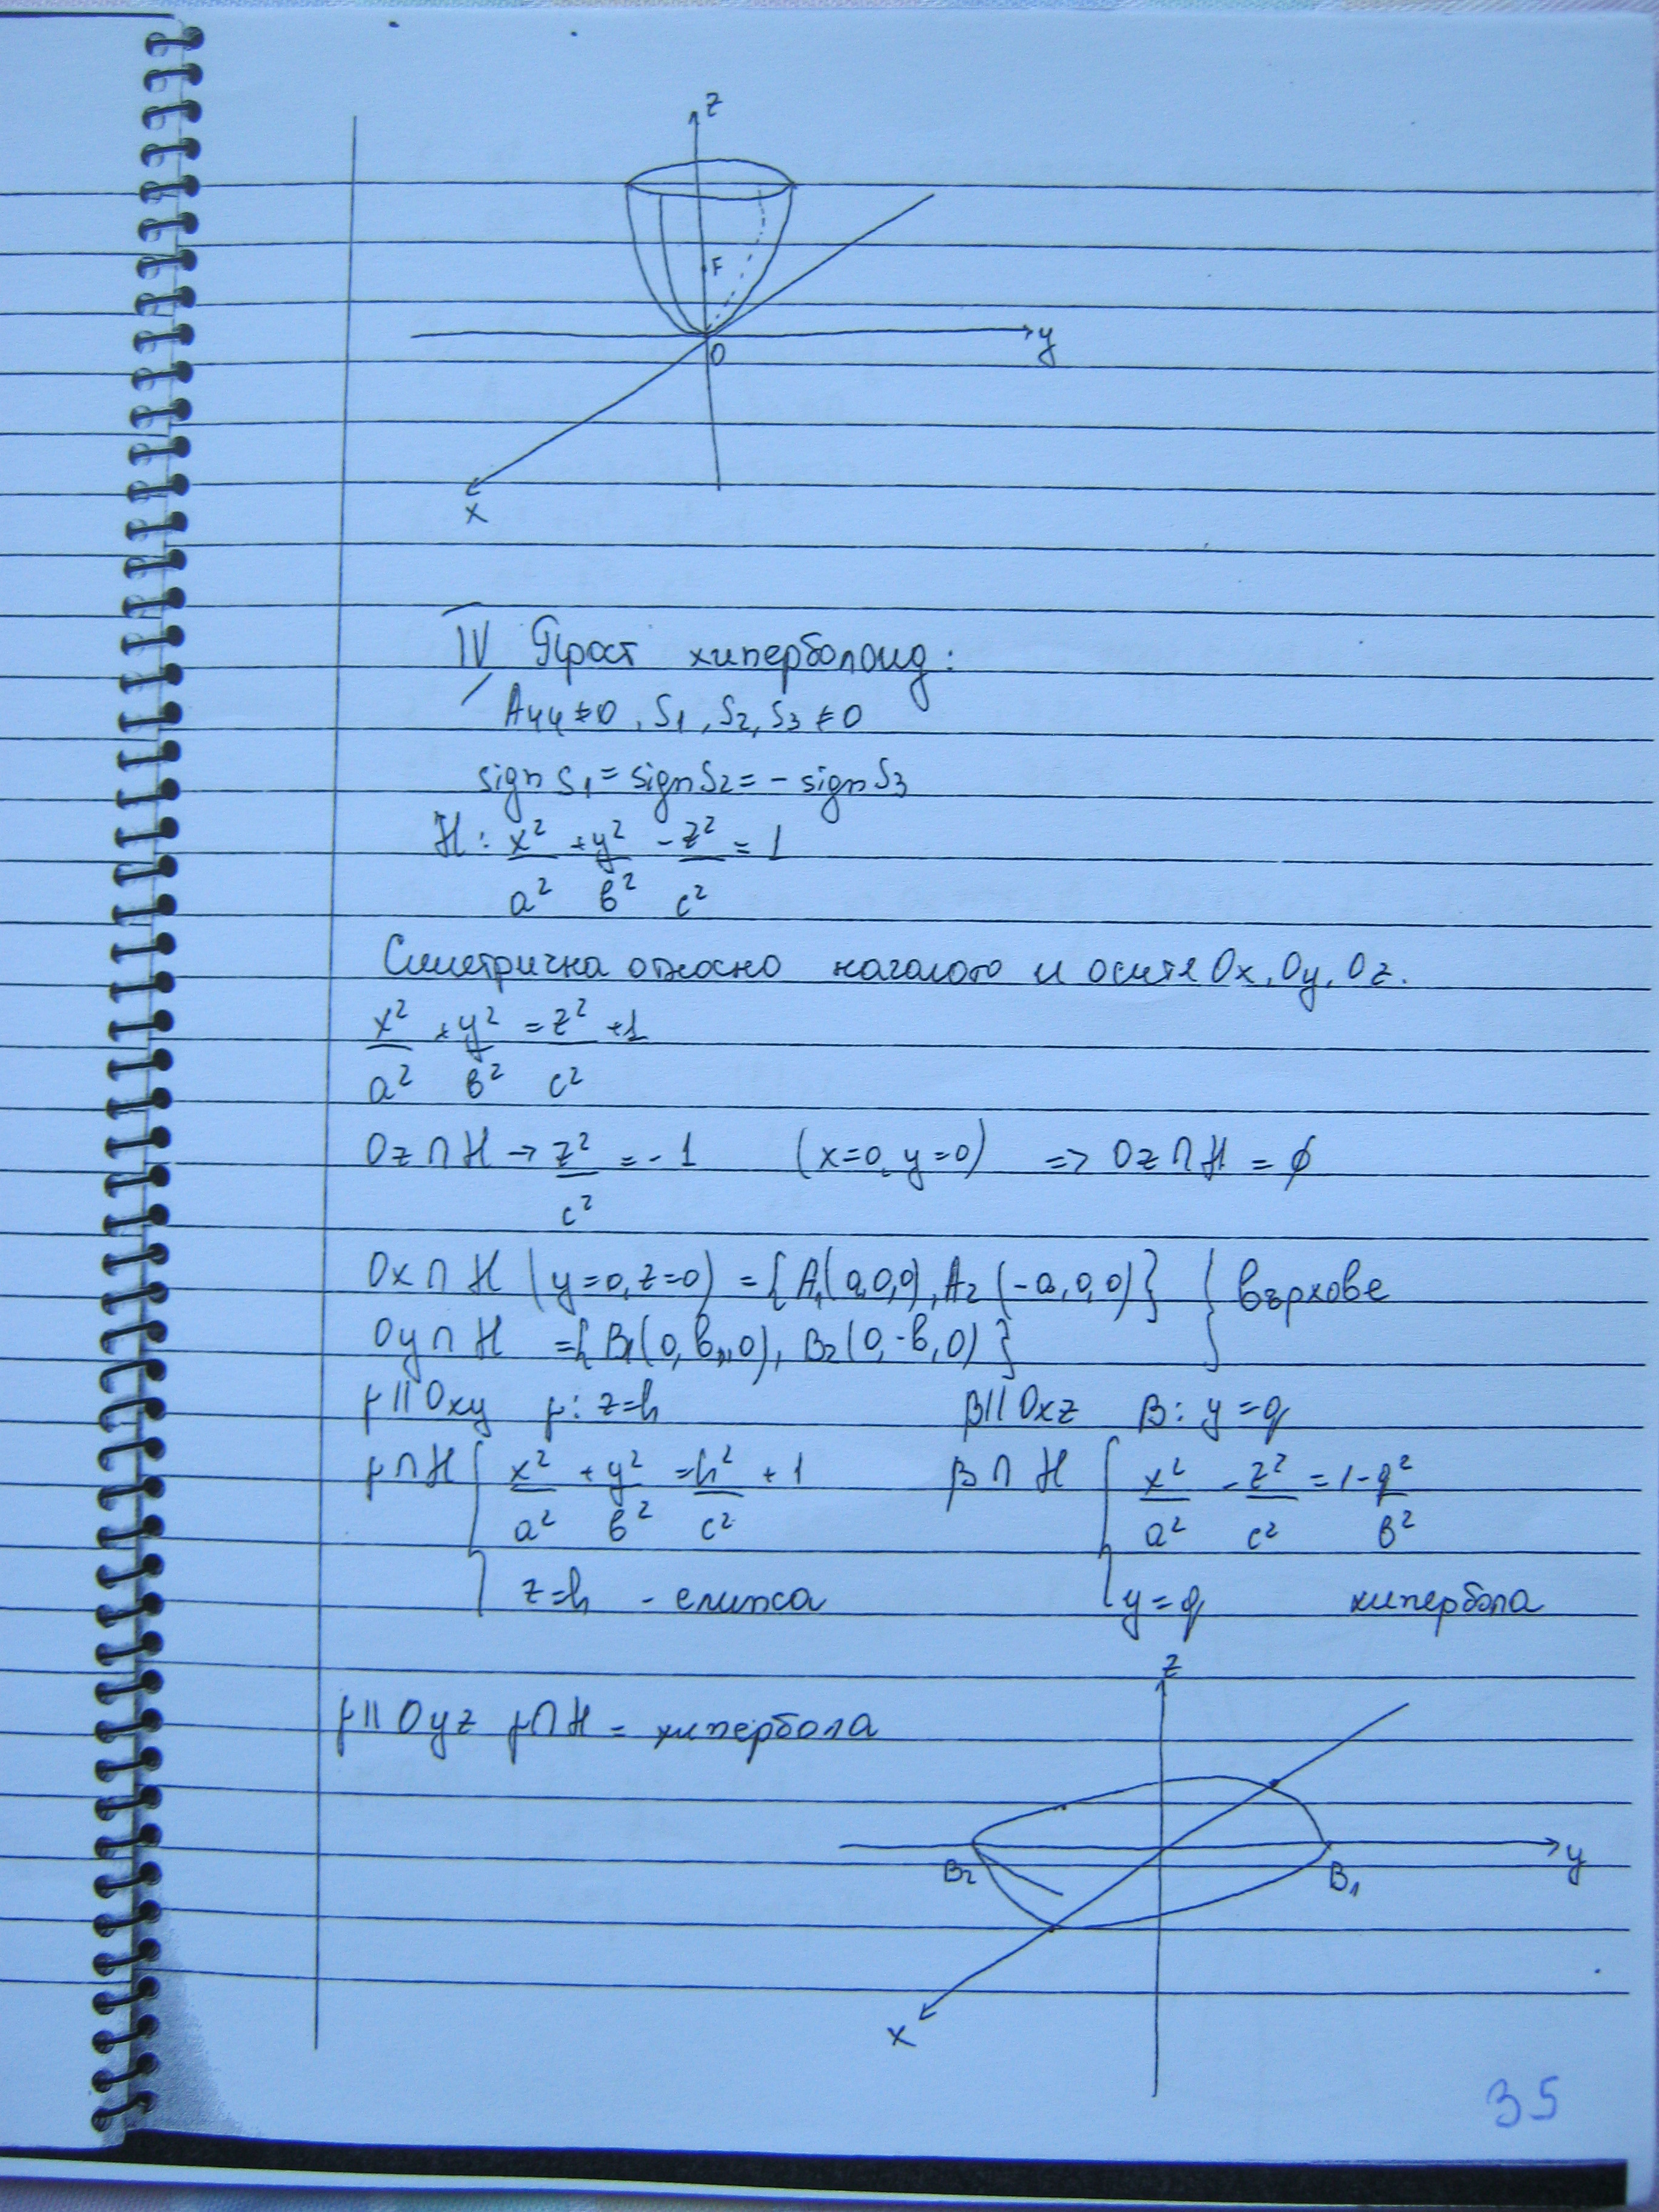 z
F
y
O
x
IV Прост хиперболоид:
A₄₄≠0, S₁, S₂, S₃ ≠0
sign S₁ = sign S₂ = - sign S₃
H: x²/a² + y²/b² - z²/c² = 1
Симетрична относно началото и осите Ox, Oy, Oz.
x²/a² + y²/b² = z²/c² + 1
Oz∩H → z²/c² = -1 (x=0, y=0) => Oz∩H = ∅
Ox∩H (y=0, z=0) = {A₁(a,0,0), A₂(-a,0,0)} } върхове
Oy∩H = {B₁(0,b,0), B₂(0,-b,0)}
γ||Oxy γ: z=h β||Oxz β: y=q
γ∩H { x²/a² + y²/b² = h²/c² + 1 β∩H { x²/a² - z²/c² = 1 - q²/b²
z=h - елипса y=q хипербола
z
γ||Oyz γ∩H = хипербола
B₂ B₁ y
x
35